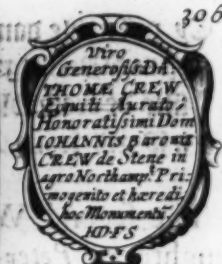 306
Viro
Generosiss Dn̄.
THOMÆ CREW
Equiti Aurato,
Honoratissimi Dom
IOHANNIS Baronis
CREW de Stene in
agro Northamp. Pri:
mogenito et hæredi
hoc Monumentū.
HDFS